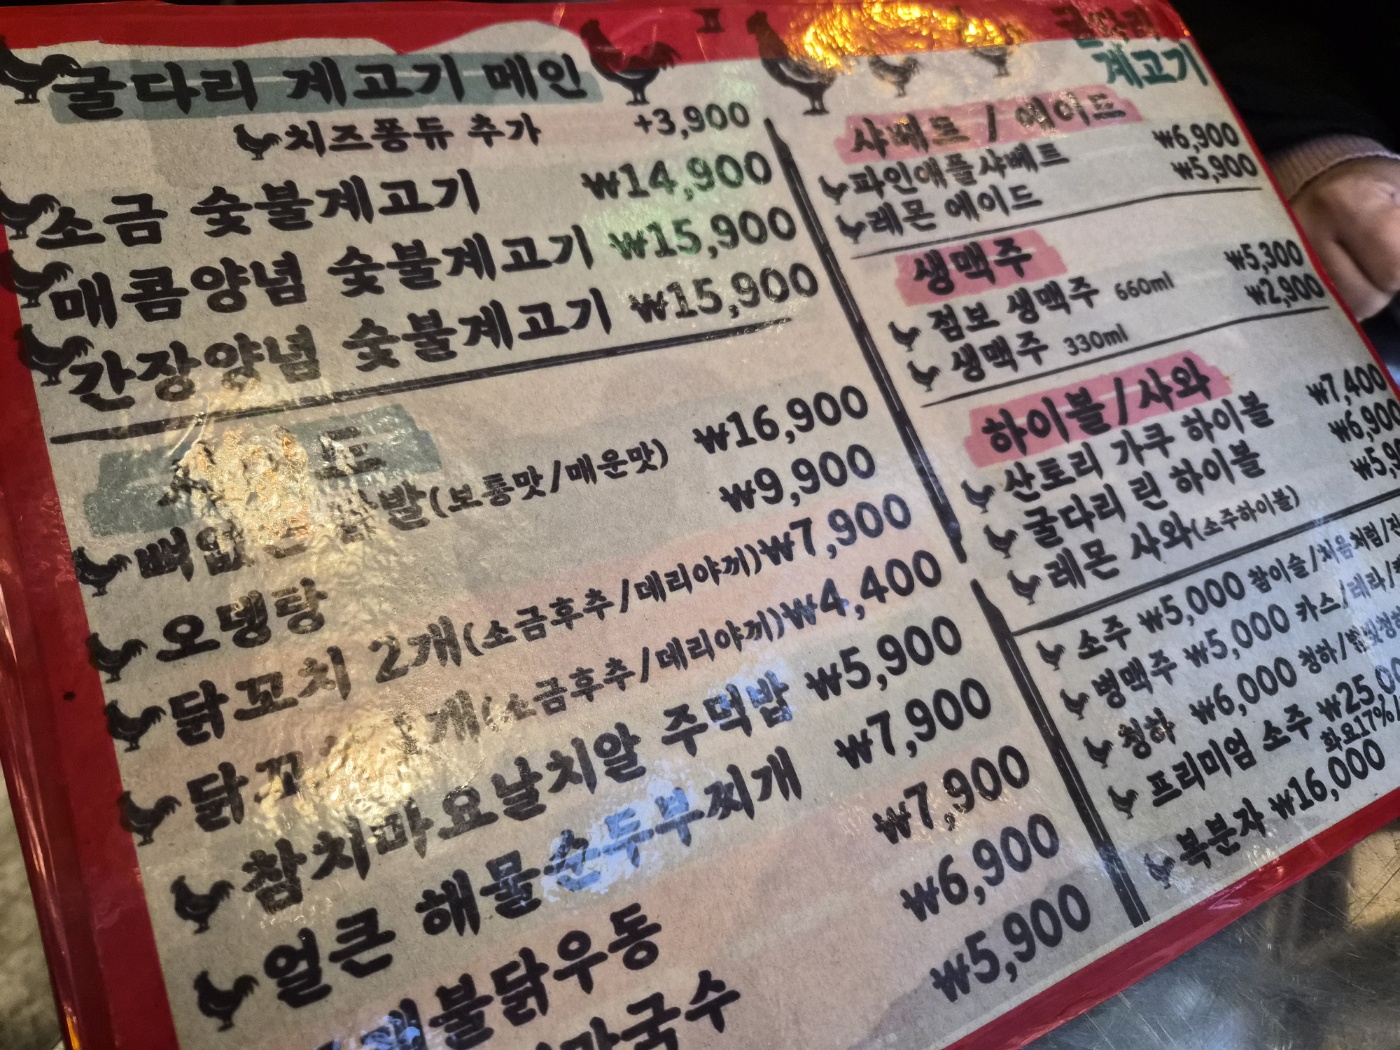 굴다리 계고기 메인
치즈퐁듀 추가 +3,900
소금 숯불계고기 ₩14,900
매콤양념 숯불계고기 ₩15,900
간장양념 숯불계고기 ₩15,900
(보통맛/매운맛) ₩16,900
오뎅탕 ₩9,900
닭꼬치 2개(소금후추/데리야끼) ₩7,900
1개(소금후추/데리야끼) ₩4,400
참치마요날치알 주먹밥 ₩5,900
얼큰 해물순두부찌개 ₩7,900
₩7,900
₩6,900
₩5,900
계고기
샤베트 / 에이드
파인애플샤베트 ₩6,900
레몬 에이드 ₩5,900
생맥주
점보 생맥주 660ml ₩5,300
생맥주 330ml ₩2,900
하이볼/사와
산토리 가쿠 하이볼 ₩7,400
굴다리 린 하이볼 ₩6,900
레몬 사와(소주하이볼)
소주 ₩5,000 참이슬/처음처럼/
병맥주 ₩5,000 카스/테라/
청하 ₩6,000 청하/
프리미엄 소주
화요17%
복분자 ₩16,000